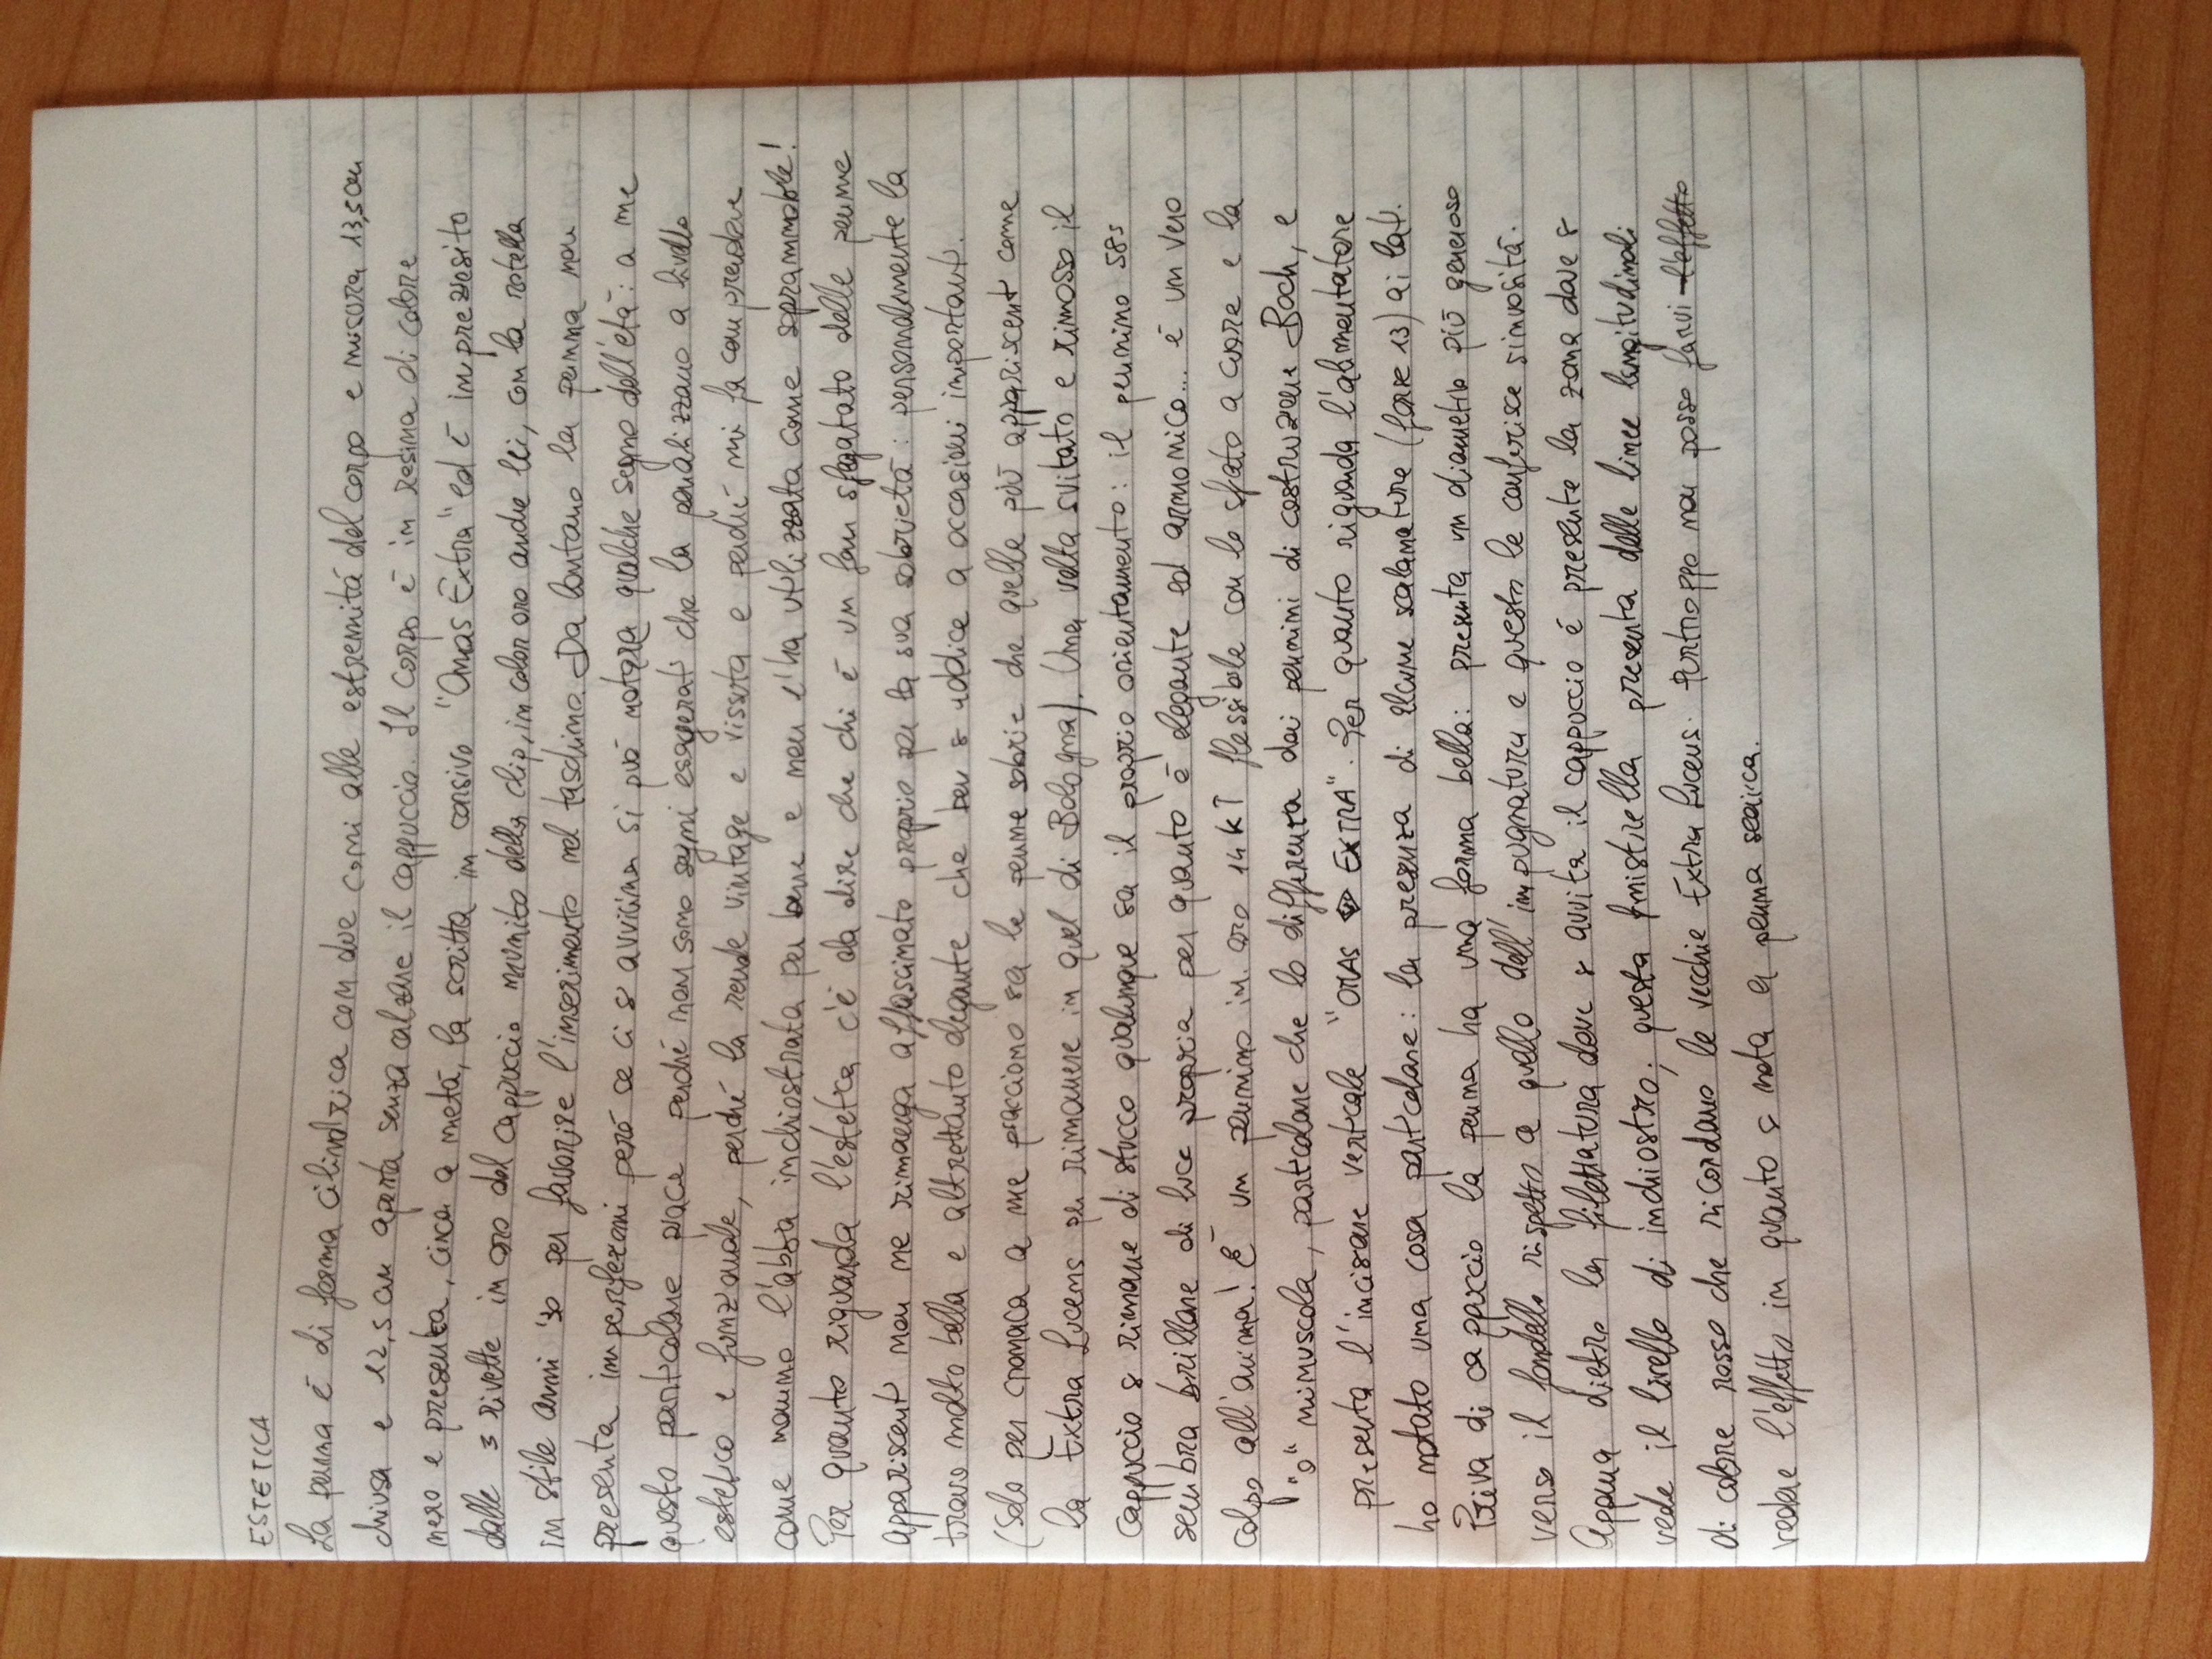 ESTETICA
La penna è di forma cilindrica con due coni alle estremità del corpo e misura 13,5cm
chiusa e 12,5 cm aperta senza calzare il cappuccio. Il corpo è in resina di colore
nero e presenta, circa a metà, la scritta in corsivo "Omas Extra" ed è impreziosito
dalle 3 rivette in oro del cappuccio munito della clip, in color oro anche lei, con la rotella
in stile anni '30 per favorire l'inserimento nel taschino. Da lontano la penna non
presenta imperfezioni però se ci si avvicina si può notare qualche segno dell'età: a me
questo particolare piace perché non sono segni esagerati che la penalizzano a livello
estetico e funzionale, perché la rende vintage e vissuta e perché mi fa comprendere
come nonno l'abbia inchiostrata per bene e non l'ha utilizzata come soprammobile!
Per quanto riguarda l'estetica c'è da dire che chi è un fan sfegatato delle penne
appariscenti non ne rimanga affascinato proprio per la sua sobrietà: personalmente la
trovo molto bella e altrettanto elegante che ben si addice a occasioni importanti.
(Solo per cronaca a me piacciono sia le penne sobrie che quelle più appariscenti come
la Extra Lucens per rimanere in quel di Bologna). Una volta svitato e rimosso il
cappuccio si rimane di stucco qualunque sia il proprio orientamento: il pennino 585
sembra brillare di luce propria per quanto è elegante ed armonico... è un vero
colpo all'anima! È un pennino in oro 14 KT flessibile con lo sfiato a cuore e la
"o" minuscola, particolare che lo differenzia dai pennini di costruzione Bock, e
presenta l'incisione verticale "OMAS EXTRA". Per quanto riguarda l'alimentatore
ho notato una cosa particolare: la presenza di alcune scalanature (forse 13) ai lati.
Priva di cappuccio la penna ha una forma bella: presenta un diametro più generoso
verso il fondello rispetto a quello dell'impugnatura e questo le conferisce sinuosità.
Appena dietro la filettatura dove si avvita il cappuccio è presente la zona dove si
vede il livello di inchiostro; questa finistrella presenta delle linee longitudinali
di colore rosso che ricordano le vecchie Extra Lucens. Purtroppo non posso farvi l'effetto
vedere l'effetto in quanto si nota a penna scarica.